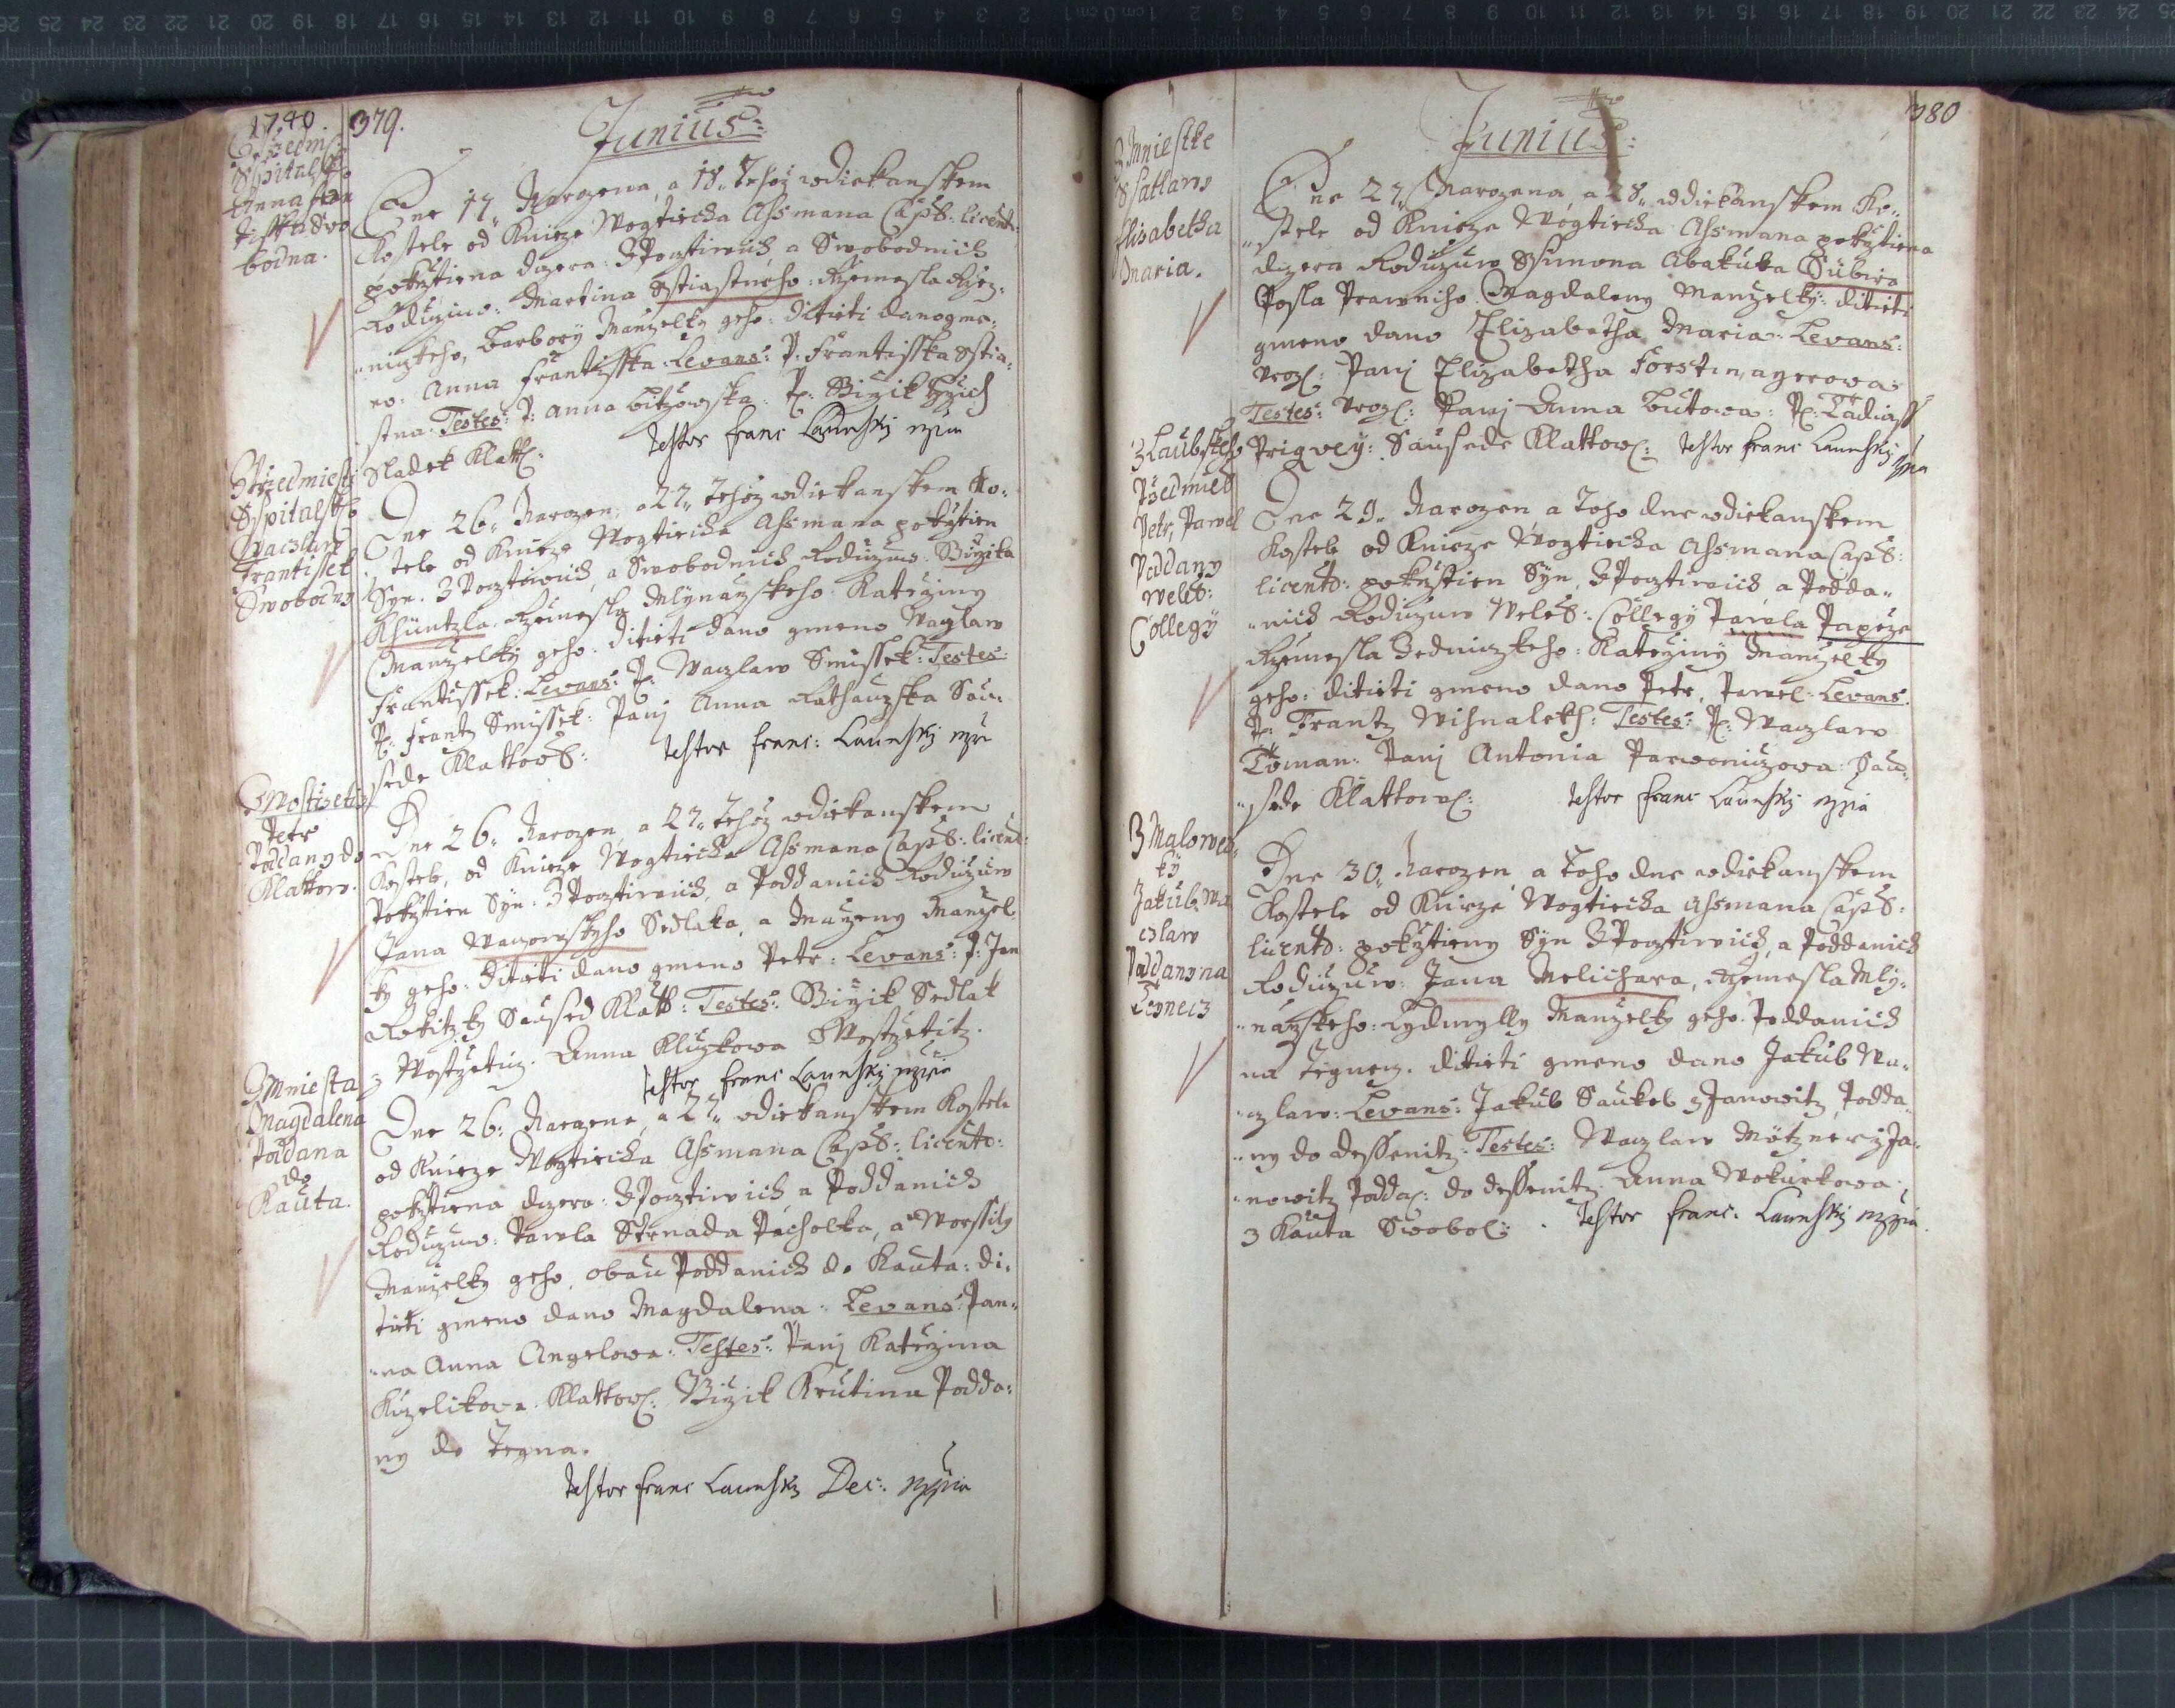 1740.
379.
Junius:
Spitalsk
Anna Fran
tisska Swo
bodna.
Dne 17 Narozena, a 18. Tehoz wdiekanskem
Kostele od Knieze Wogtiecha Assmana Cap: licent:
pokrztiena dczera: Z Pocztiwich a Swobodnich
Rodiczuw: Martina Sstiastneho: Rzemesla Rzez„
„niczkeho, Barbory Manzelky geho: ditieti dano gme„
no: Anna Frantisska: Levans: P: Frantisska Sstia„
stna: Testes: P: Anna P: Girzik
Sladek Klatt:
Testor Franc Launsky mpria
Z Przedmiesti
Sspitalsk
Waczlaw
Frantissek
Swobodny
Dne 26. Narozen, a 27. Tehoz wdiekanskem Ko„
stele od Knieze Wogtiecha Assmana pokrztien
Syn. Z Pocztiwich, a Swobodnich Rodiczuw: Girzika
Khüntzla. Rzemesla Mlynarzskeho. Katerziny
Manzelky geho: ditieti dano gmeno Waczlaw
Frantissek: Levans: P: Waczlaw Smissek: Testes:
P: Frantz Smissek: Pani Anna Rathauzska Sau„
sede Klattows:
Testor Franc: Launsky mpria
Z Mostietic
Petr
Poddany do
Klattow.
Dne 26. Narozen, a 27. Tehoz wdiekanskem
Kostele, od Knieze Wogtiecha Assmana Cap: licent:
Pokrztien Syn: Z Pocztiwich, a Poddanich Rodiczuw
Jana Waczowskyho Sedlaka, a Manzel„
ky geho: ditieti dano gmeno Petr: Levans: P: Jan
Rokitzky Saused Klatt: Testes: Girzik Sedlak
z Mostietic. Anna Kluzkowa z Mostietitz.
Testor Franc Launsky mpria
Z Mniesta
Magdalena
Poddana
do
Kauta.
Dne 26: Narozena, a 27. wdiekanskem Kostele
od Knieze Wogtiecha Assmana Cap: licento:
pokrztiena dczera: Z Pocztiwich, a Poddanich
Rodiczuw: Pawla Strnada Pacholka, a Worssily
Manzelky geho, obau Poddanich do Kauta: di„
tieti gmeno dano Magdalena: Levans: Pan„
„na Anna Angelowa: Testes: Pani Katerzina
Kuzelikowa. Klattow: Girzik Krutina Podda„
ny do Tegna.
Testor Franc Launsky Dec: mpria
380
Junius:
Z Mniestke
Ssatlawy
Elisabetha
Maria.
Dne 27. Narozena, a 28. wdiekanskem Ko„
„stele od Knieze Wogtiecha Assmana pokrztiena
dczera Rodiczuw Ssimona Abakuka Subira
Posla Prawniho. Magdaleny Manzelky: ditieti
gmeno dano Elizabetha Maria: Levans:
Uroz: Pani Elizabetha Forstin,
Testes: Uroz: Pani Anna Butowa: P: Tadiass
Prigwey: Sausede Klattow: Testor Franc Launsky mpria
Z Laubskeho
Przedmies
Petr, Pawel
Poddany
weleb:
Collegy
Dne 29. Narozen a Toho dne wdiekanskem
Kostele od Knieze Wogtiecha Assmana Cap:
licento: pokrztien Syn, Z Pocztiwich a Podda„
„nich Rodiczuw Weleb: Collegy Pawla Papeze
Rzemesla Zedniczkeho: Katerziny Manzelky
geho: ditieti gmeno dano Petr, Pawel: Levans:
P: Frantz Wisnalek: Testes: P: Waczlaw
Toman: Pani Antonia Parwoniczowa: Sau„
„sede Klattow:
Testor Franc Launsky mpria
Z Malowes„
ky
Jakub, Wa
czlaw
Poddany na
Tegnecz
Dne 30. Narozen, a Toho dne wdiekanskem
Kostele od Knieze Wogtiecha Assmana Cap:
licento: pokrztieny Syn Z Pocztiwich, a Poddanich
Rodiczuw: Jana Melichara, Rzemesla Mly„
„narzskeho: Lydmylly Manzelky geho. Poddanich
na Tegnecz. ditieti gmeno dano Jakub Wa„
„czlaw: Levans: Jakub Saukeb z Janowitz, Podda„
„ny do Dessenitz: Testes: Waczlaw Mötzner z Ja„
„nowitz Podda: do Dessenitz. Anna Wokurkowa
z Kauta Swobo: . Testor Franc. Launsky mpria.